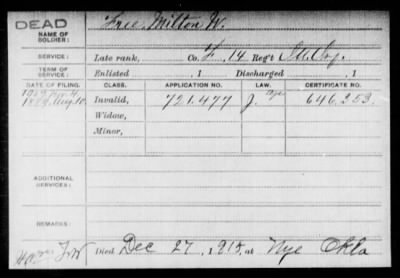 DEAD
NAME OF SOLDIER:
Free, Milton W.
SERVICE:
Late rank, Co. F, 14 Reg't Ill Inf.
TERM OF SERVICE:
Enlisted , 1 Discharged , 1
DATE OF FILING. CLASS. APPLICATION NO. LAW. CERTIFICATE NO.
1889 Aug 10 Invalid, 721.477 646.253
Widow,
Minor,
ADDITIONAL SERVICES:
REMARKS:
Died Dec 27, 1915, at Nye Okla